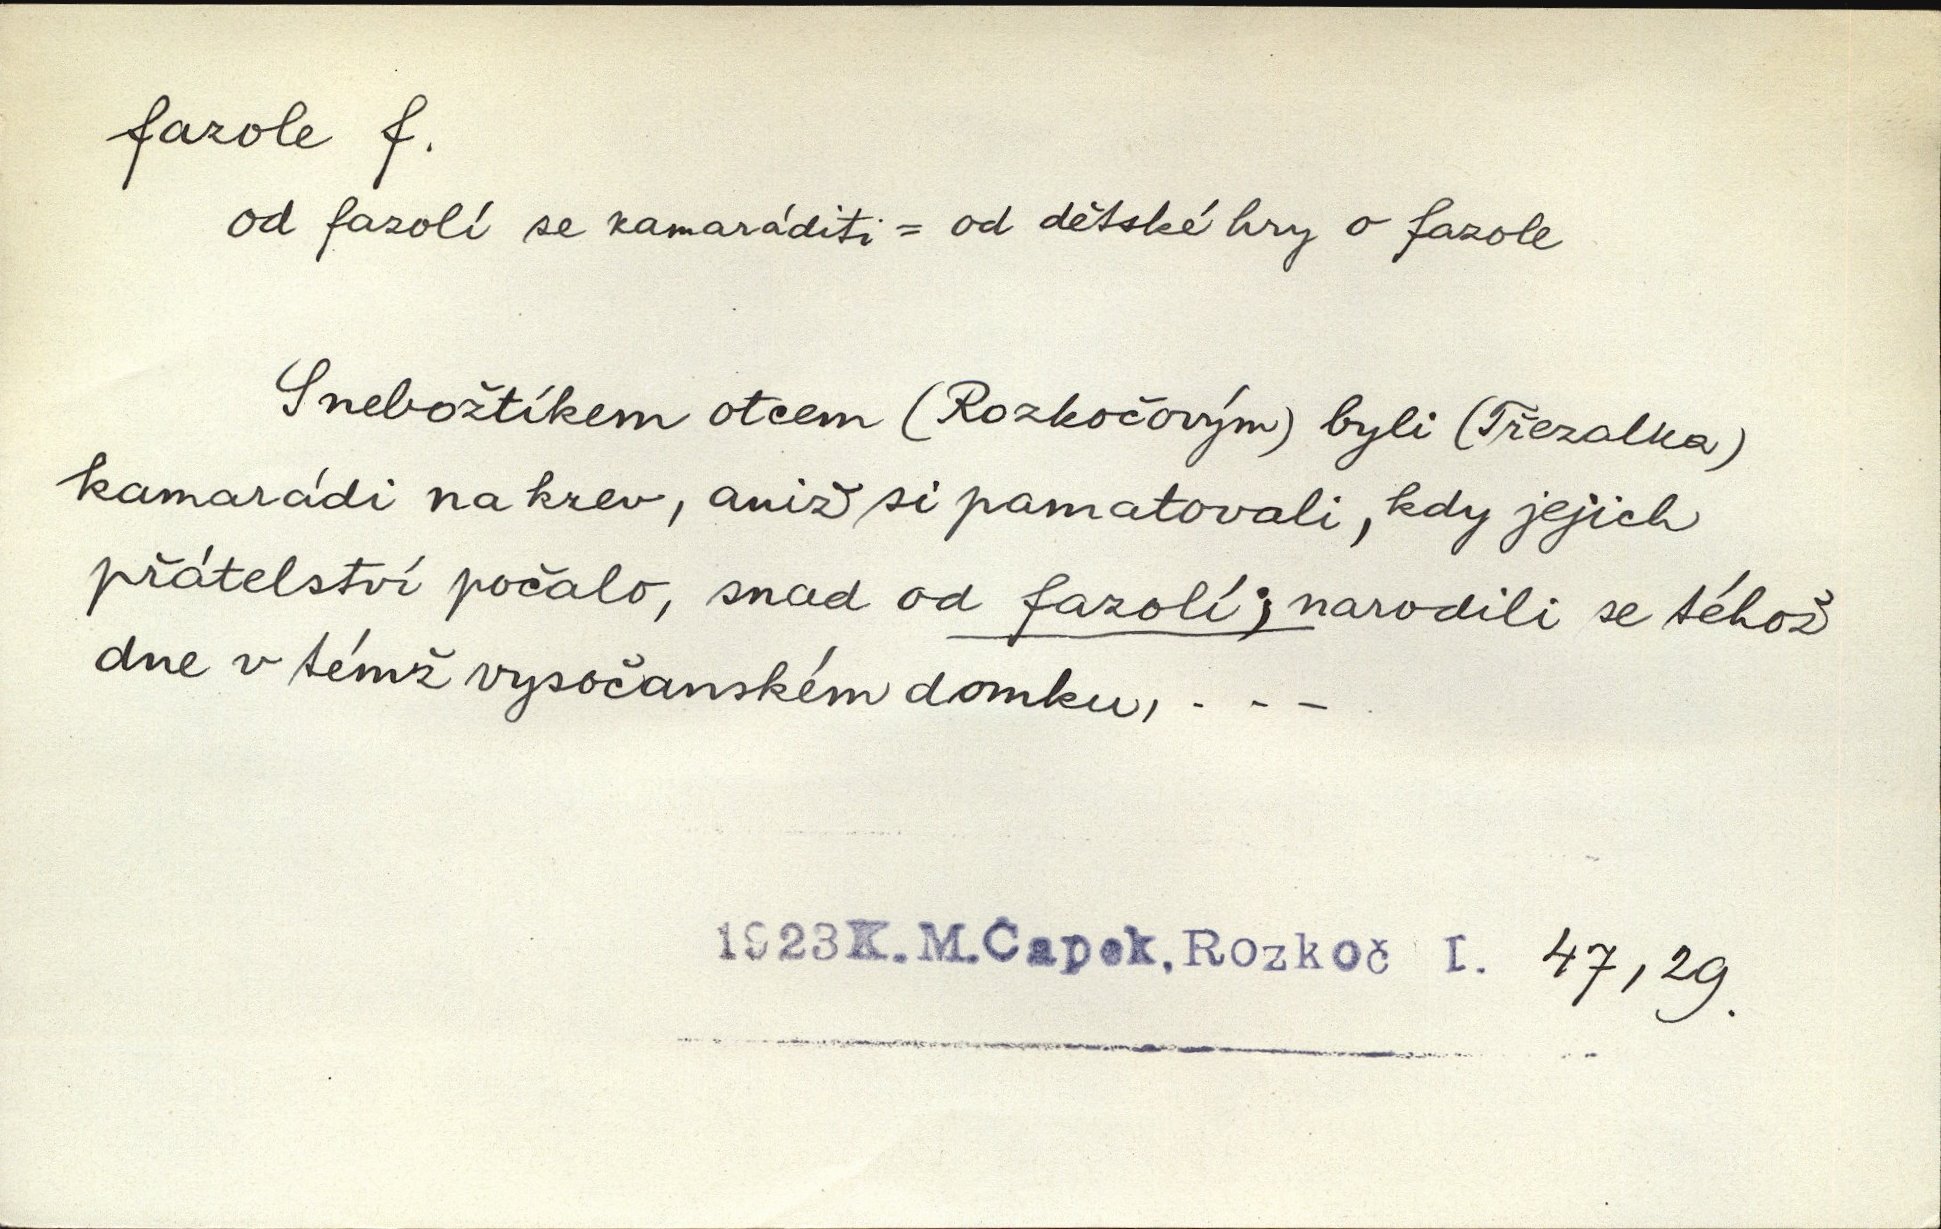 fazole f.
od fazolí se kamaráditi = od dětské hry o fazole
S nebožtíkem otcem (Rozkočovým) byli (Třezalka)
kamarádi na krev, aniž si pamatovali, kdy jejich
přátelství počalo, snad od fazolí; narodili se téhož
dne v témž vysočanském domku, . - -
1923 K. M. Čapek, Rozkoč I. 47, 29.